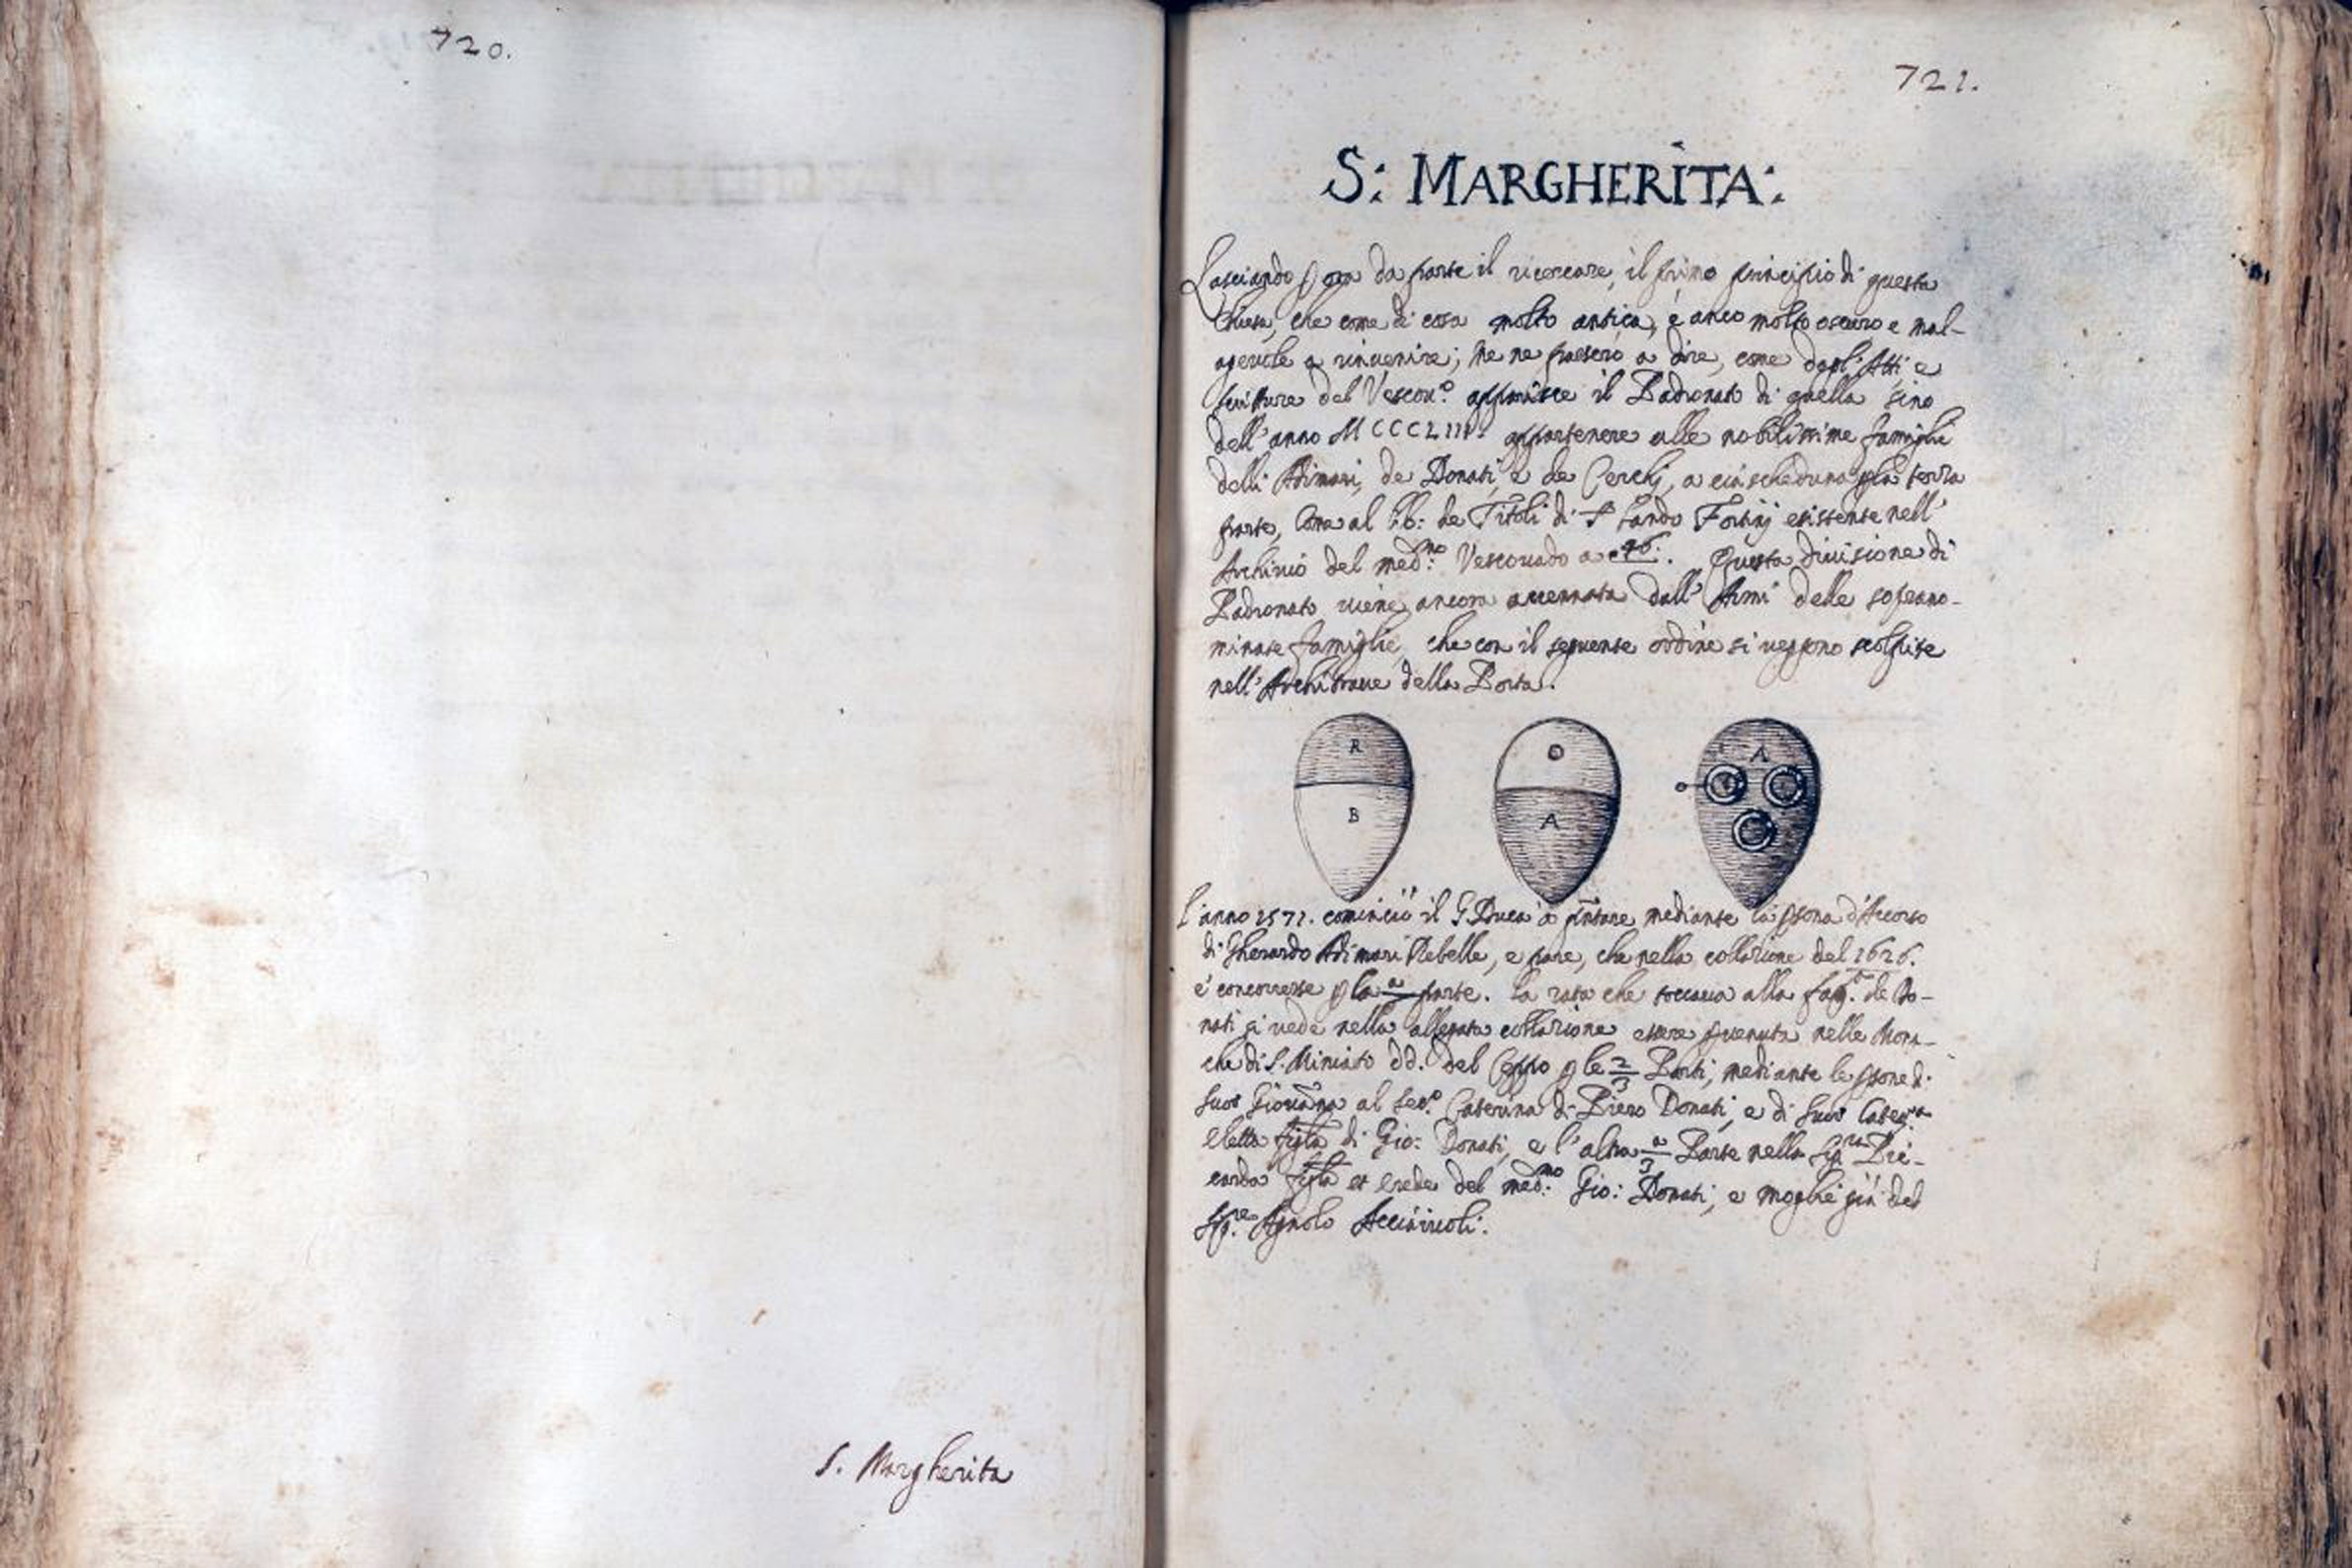 720.
S. Margherita
721.
S: MARGHERITA:
Lasciando p ora da parte il ricercare, il primo principio di questa
Chiesa, che come di cosa molto antica, è anco molto oscuro e mal-
agevole a rinvenire; me ne passerò a dire, come dagli Atti e
scritture del Vescov.º apparisce il Padronato di quella sino
dell' anno MCCCLIII. appartenere alle nobilissime famiglie
delli Adimari, de Donati, e de Cerchj, a ciascheduna p la terza
parte, Come al lib: de Titoli di Lando Fortinj esistente nell'
Archivio del med.mo Vescovado a 46. Questa divisione di
Padronato viene ancora accennata dall' Armi delle soprano-
minate famiglie, che con il seguente ordine si veggono scolpite
nell' Architrave della Porta.
R
B
O
A
A
O
l'anno 1571. cominciò il G. Duca a pntare mediante la psona d'Accorso
di Gherardo Adimari Rebelle, e pare, che nella collazione del 1626.
e' concorresse p la parte. La rata che toccava alla fag.a de Do-
nati si vede nella allegata collazione essere pvenuta nelle Mona-
che di S. Miniato dd. del Ceppo p le 2/3 Parti, mediante le psone di
Suor Giovāna al sec.º Caterina di Piero Donati, e di Suor Cater.a
Eletta figla di Gio: Donati, e l'altra Parte nella Sig.ra Pic-
carda figla et erede del med.mo Gio: Donati, e moglie già del
Sig.re Agnolo Acciaivoli.